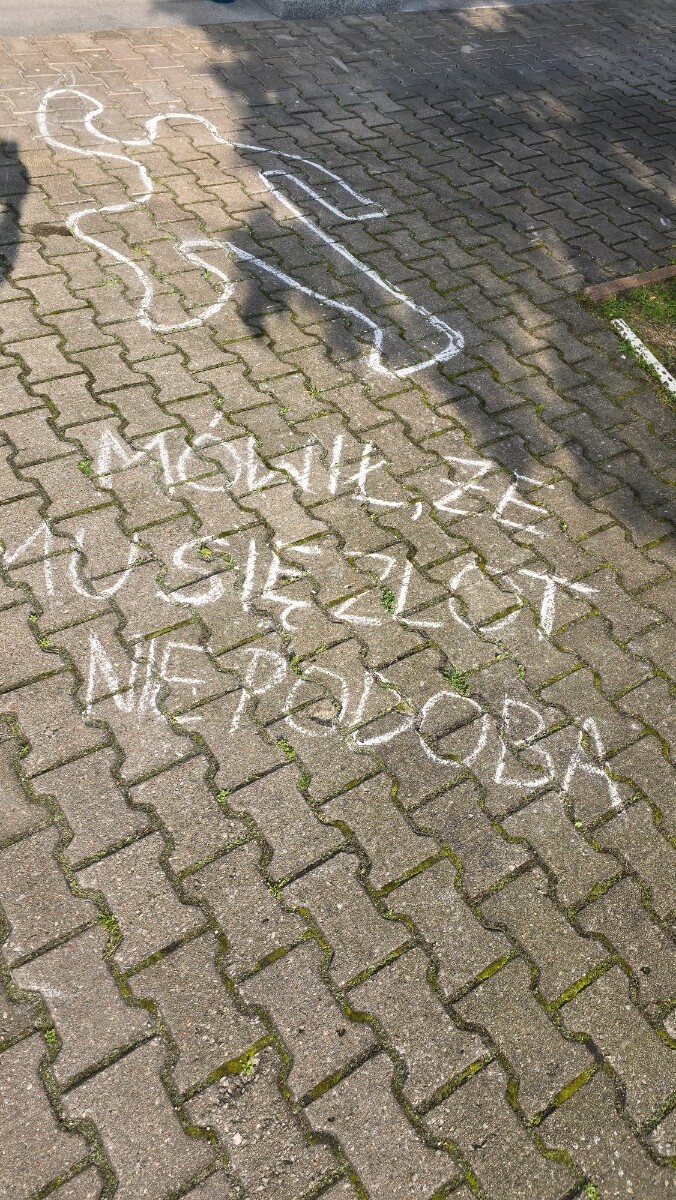 MÓWIŁ, ŻE
MU SIĘ ZLOT
NIE PODOBA